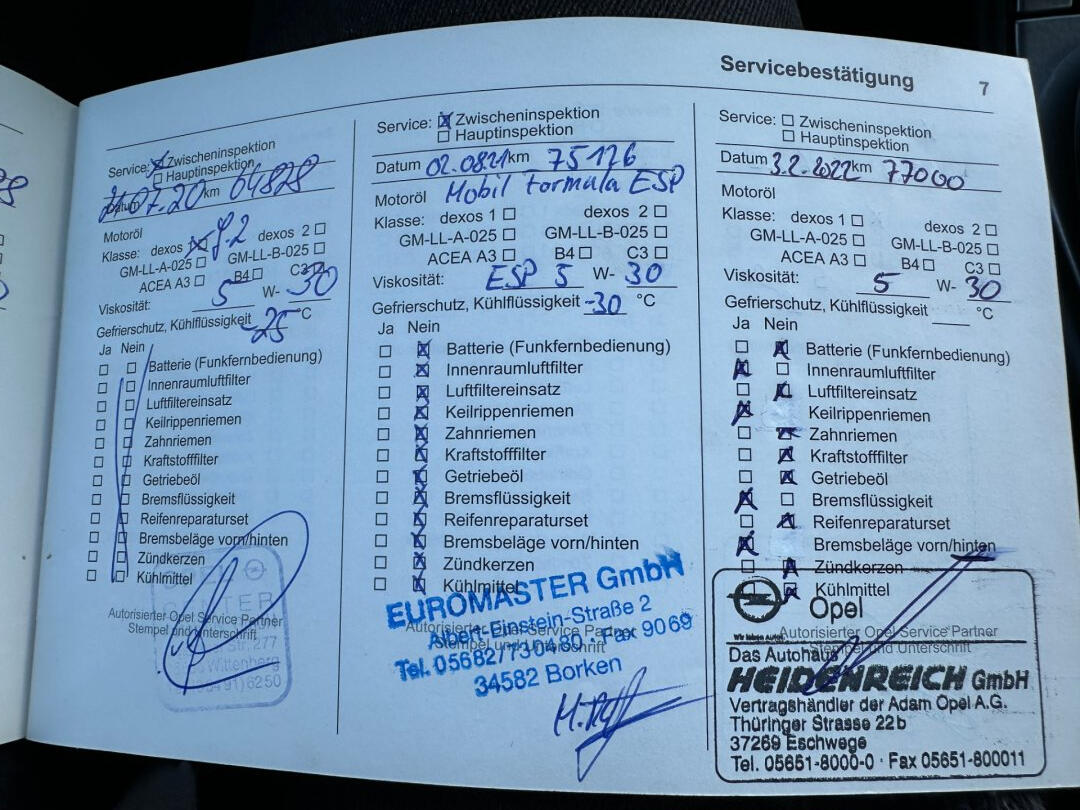 Servicebestätigung 7
Service: Zwischeninspektion
Hauptinspektion
Datum 21.07.20 km 64878
Motoröl
Klasse: dexos 1 g.2 dexos 2
GM-LL-A-025 GM-LL-B-025
ACEA A3 B4 C3
Viskosität: 5 W- 30
Gefrierschutz, Kühlflüssigkeit -25 °C
Ja Nein
Batterie (Funkfernbedienung)
Innenraumluftfilter
Luftfiltereinsatz
Keilrippenriemen
Zahnriemen
Kraftstofffilter
Getriebeöl
Bremsflüssigkeit
Reifenreparaturset
Bremsbeläge vorn/hinten
Zündkerzen
Kühlmittel
Autorisierter Opel Service Partner
Stempel und Unterschrift
Str. 277
Wittenberg
Service: Zwischeninspektion
Hauptinspektion
Datum 02.08.21 km 75176
Motoröl Mobil Formula ESP
Klasse: dexos 1 dexos 2
GM-LL-A-025 GM-LL-B-025
ACEA A3 B4 C3
Viskosität: ESP 5 W- 30
Gefrierschutz, Kühlflüssigkeit -30 °C
Ja Nein
Batterie (Funkfernbedienung)
Innenraumluftfilter
Luftfiltereinsatz
Keilrippenriemen
Zahnriemen
Kraftstofffilter
Getriebeöl
Bremsflüssigkeit
Reifenreparaturset
Bremsbeläge vorn/hinten
Zündkerzen
Kühlmittel
Autorisierter Opel Service Partner
Stempel und Unterschrift
EUROMASTER GmbH
Albert-Einstein-Straße 2
Tel. 05682/730480 · Fax 9069
34582 Borken
Service: Zwischeninspektion
Hauptinspektion
Datum 3.2.2022 km 77000
Motoröl
Klasse: dexos 1 dexos 2
GM-LL-A-025 GM-LL-B-025
ACEA A3 B4 C3
Viskosität: 5 W- 30
Gefrierschutz, Kühlflüssigkeit °C
Ja Nein
Batterie (Funkfernbedienung)
Innenraumluftfilter
Luftfiltereinsatz
Keilrippenriemen
Zahnriemen
Kraftstofffilter
Getriebeöl
Bremsflüssigkeit
Reifenreparaturset
Bremsbeläge vorn/hinten
Zündkerzen
Kühlmittel
Autorisierter Opel Service Partner
Stempel und Unterschrift
Opel
Wir leben Autos.
Das Autohaus
HEIDENREICH GmbH
Vertragshändler der Adam Opel A.G.
Thüringer Strasse 22b
37269 Eschwege
Tel. 05651-8000-0 · Fax 05651-800011